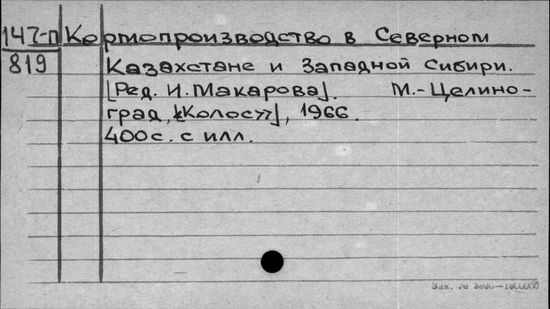 147-п Кормопроизводство в Северном
819 Казахстане и Западной Сибири.
[Ред. И. Макарова]. М.-Целино-
град, [«Колос»], 1966.
400с. с илл.
Зак.